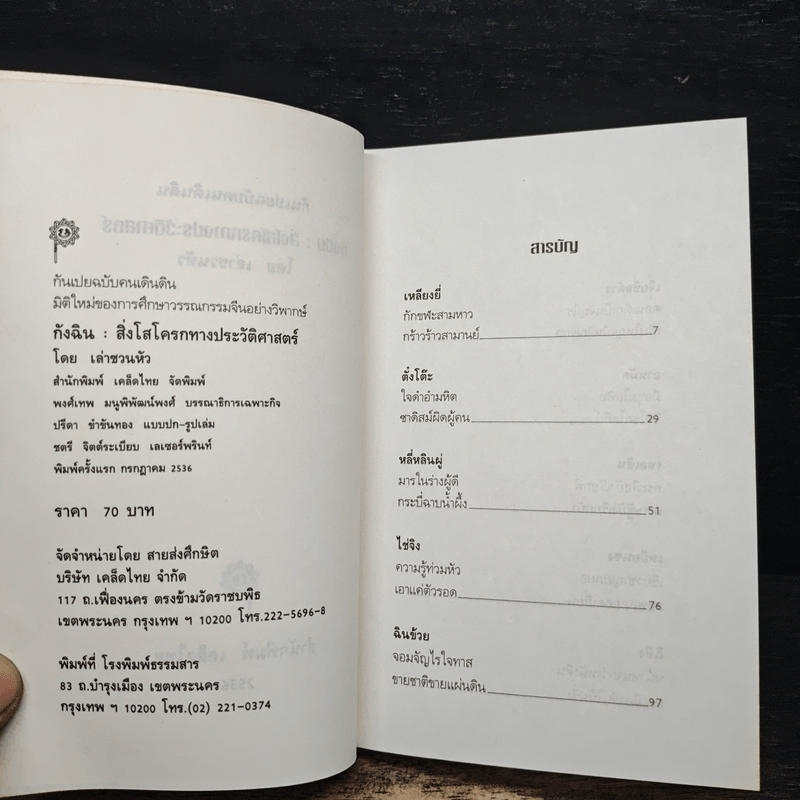 กันเปยฉบับคนเดินดิน
มิติใหม่ของการศึกษาวรรณกรรมจีนอย่างวิพากษ์
กังฉิน : สิ่งโสโครกทางประวัติศาสตร์
โดย เล่าชวนหัว
สำนักพิมพ์ เคล็ดไทย จัดพิมพ์
พงศ์เทพ มนูพิพัฒน์พงศ์ บรรณาธิการเฉพาะกิจ
ปรีดา ขำขันทอง แบบปก-รูปเล่ม
ชตรี จิตต์ระเบียบ เลเซอร์พรินท์
พิมพ์ครั้งแรก กรกฎาคม 2536
ราคา 70 บาท
จัดจำหน่ายโดย สายส่งศึกษิต
บริษัท เคล็ดไทย จำกัด
117 ถ.เฟื่องนคร ตรงข้ามวัดราชบพิธ
เขตพระนคร กรุงเทพ ฯ 10200 โทร.222-5696-8
พิมพ์ที่ โรงพิมพ์ธรรมสาร
83 ถ.บำรุงเมือง เขตพระนคร
กรุงเทพ ฯ 10200 โทร.(02) 221-0374
สารบัญ
เหลียงยี่
กักขฬะสามหาว
กร้าวร้าวสามานย์ 7
ตั๋งโต๊ะ
ใจดำอำมหิต
ซาดิสม์ผิดผู้คน 29
หลี่หลินผู่
มารในร่างผู้ดี
กระบี่ฉาบน้ำผึ้ง 51
ไช่จิง
ความรู้ท่วมหัว
เอาแค่ตัวรอด 76
ฉินข้วย
จอมจัญไรใจทาส
ขายชาติขายแผ่นดิน 97